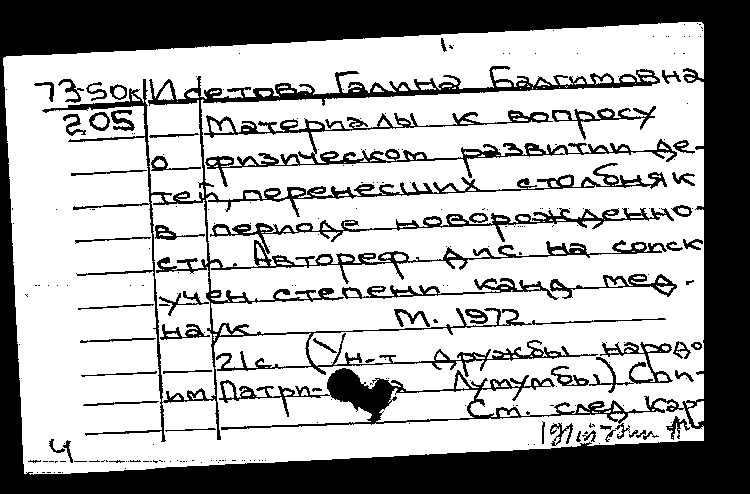 1.
73-50к Исетова, Галина Балгимовна
205 Материалы к вопросу
о физическом развитии де-
тей, перенесших столбняк
в периоде новорожденно-
сти. Автореф. дис. на соиск
учен. степени канд. мед.
наук. М., 1972.
21 с. (Ун-т дружбы народо
им. Патри- Лумумбы) Спи-
См. след. кар
4